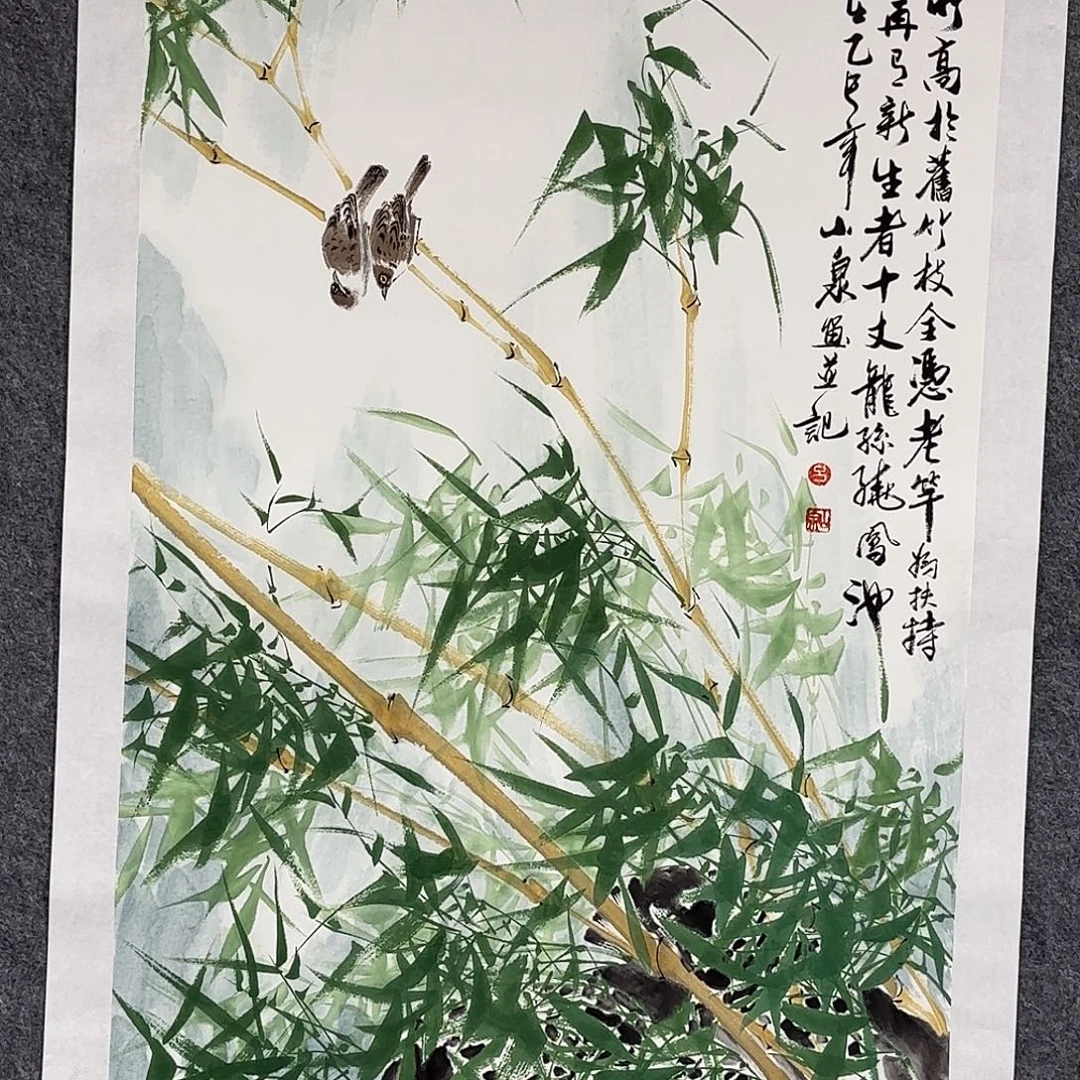 竹高於舊竹枝全憑老竿為扶持
再有新生者十丈龍孫繞鳳池
乙巳年小泉画並記